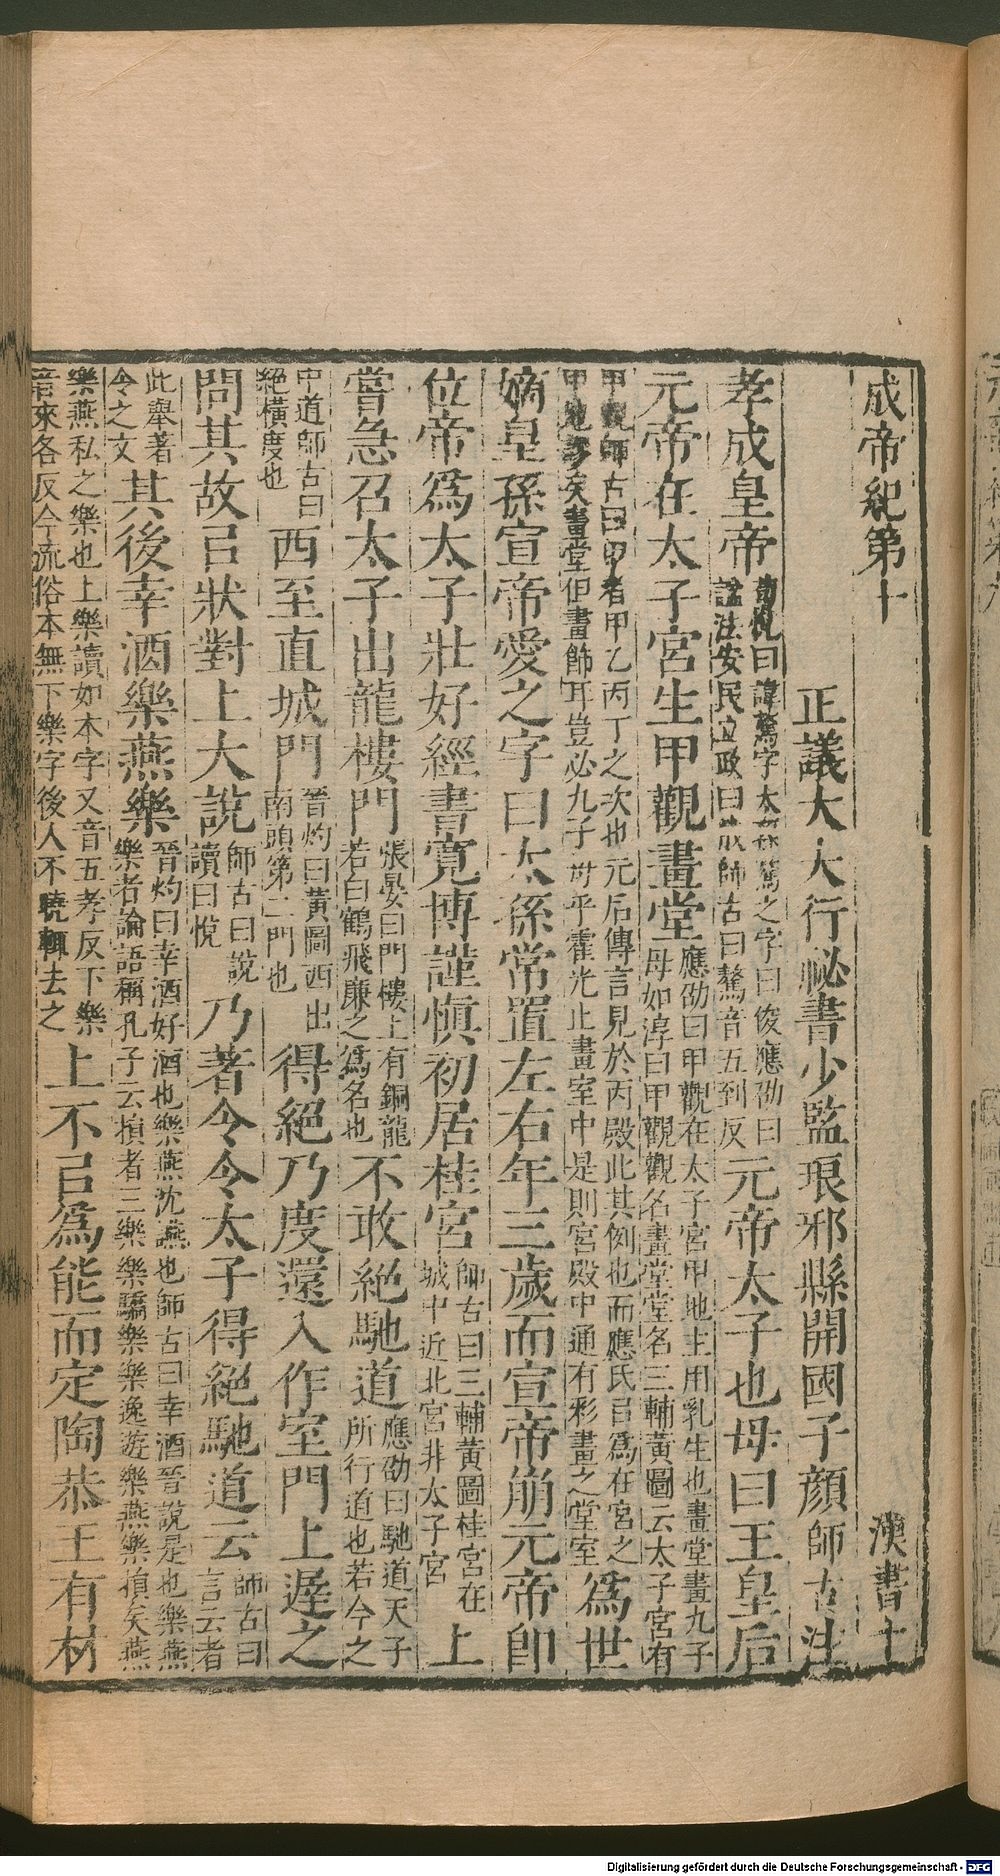 成帝紀第十　漢書十
正議大夫行祕書少監琅邪縣開國子顏師古注
孝成皇帝荀悅曰諱驁字太孫驁之字曰俊應劭曰諡法安民立政曰成師古曰驁音五到反元帝太子也母曰王皇后
元帝在太子宮生甲觀畫堂應劭曰甲觀在太子宮甲地主用乳生也畫堂畫九子母如淳曰甲觀觀名畫堂堂名三輔黃圖云太子宮有
甲觀師古曰甲者甲乙丙丁之次也元后傳言見於丙殿此其例也而應氏㠯為在宮之甲地謬矣畫堂但畫飾耳豈必九子母乎霍光止畫室中是則宮殿中通有彩畫之堂室為世
嫡皇孫宣帝愛之字曰太孫常置左右年三歲而宣帝崩元帝卽
位帝為太子壯好經書寬博謹愼初居桂宮師古曰三輔黃圖桂宮在城中近北宮非太子宮上
嘗急召太子出龍樓門張晏曰門樓上有銅龍若白鶴飛廉之為名也不敢絕馳道應劭曰馳道天子所行道也若今之
中道師古曰絕橫度也西至直城門晉灼曰黃圖西出南頭第二門也得絕乃度還入作室門上遲之
問其故㠯狀對上大說師古曰說讀曰悅乃著令令太子得絕馳道云師古曰言云者
此舉著令之文其後幸酒樂燕樂晉灼曰幸酒好酒也樂燕沈讌也師古曰幸酒晉說是也樂燕樂者論語稱孔子云損者三樂樂驕樂樂逸遊樂燕樂損矣燕
樂燕私之樂也上樂讀如本字又音五孝反下樂音來各反今流俗本無下樂字後人不曉輒去之上不㠯為能而定陶恭王有材
Digitalisierung gefördert durch die Deutsche Forschungsgemeinschaft - DFG